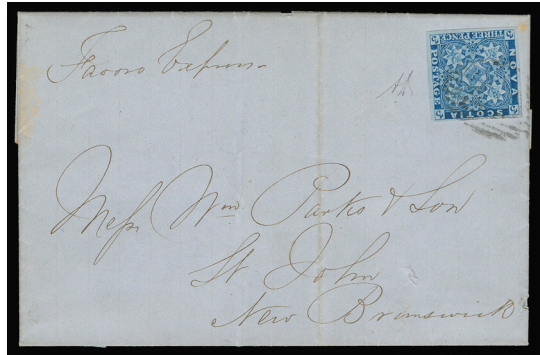 Favors Express
NOVA
SCOTIA
POSTAGE
THREE PENCE
Messrs Wm Parks & Son
St John
New Brunswick